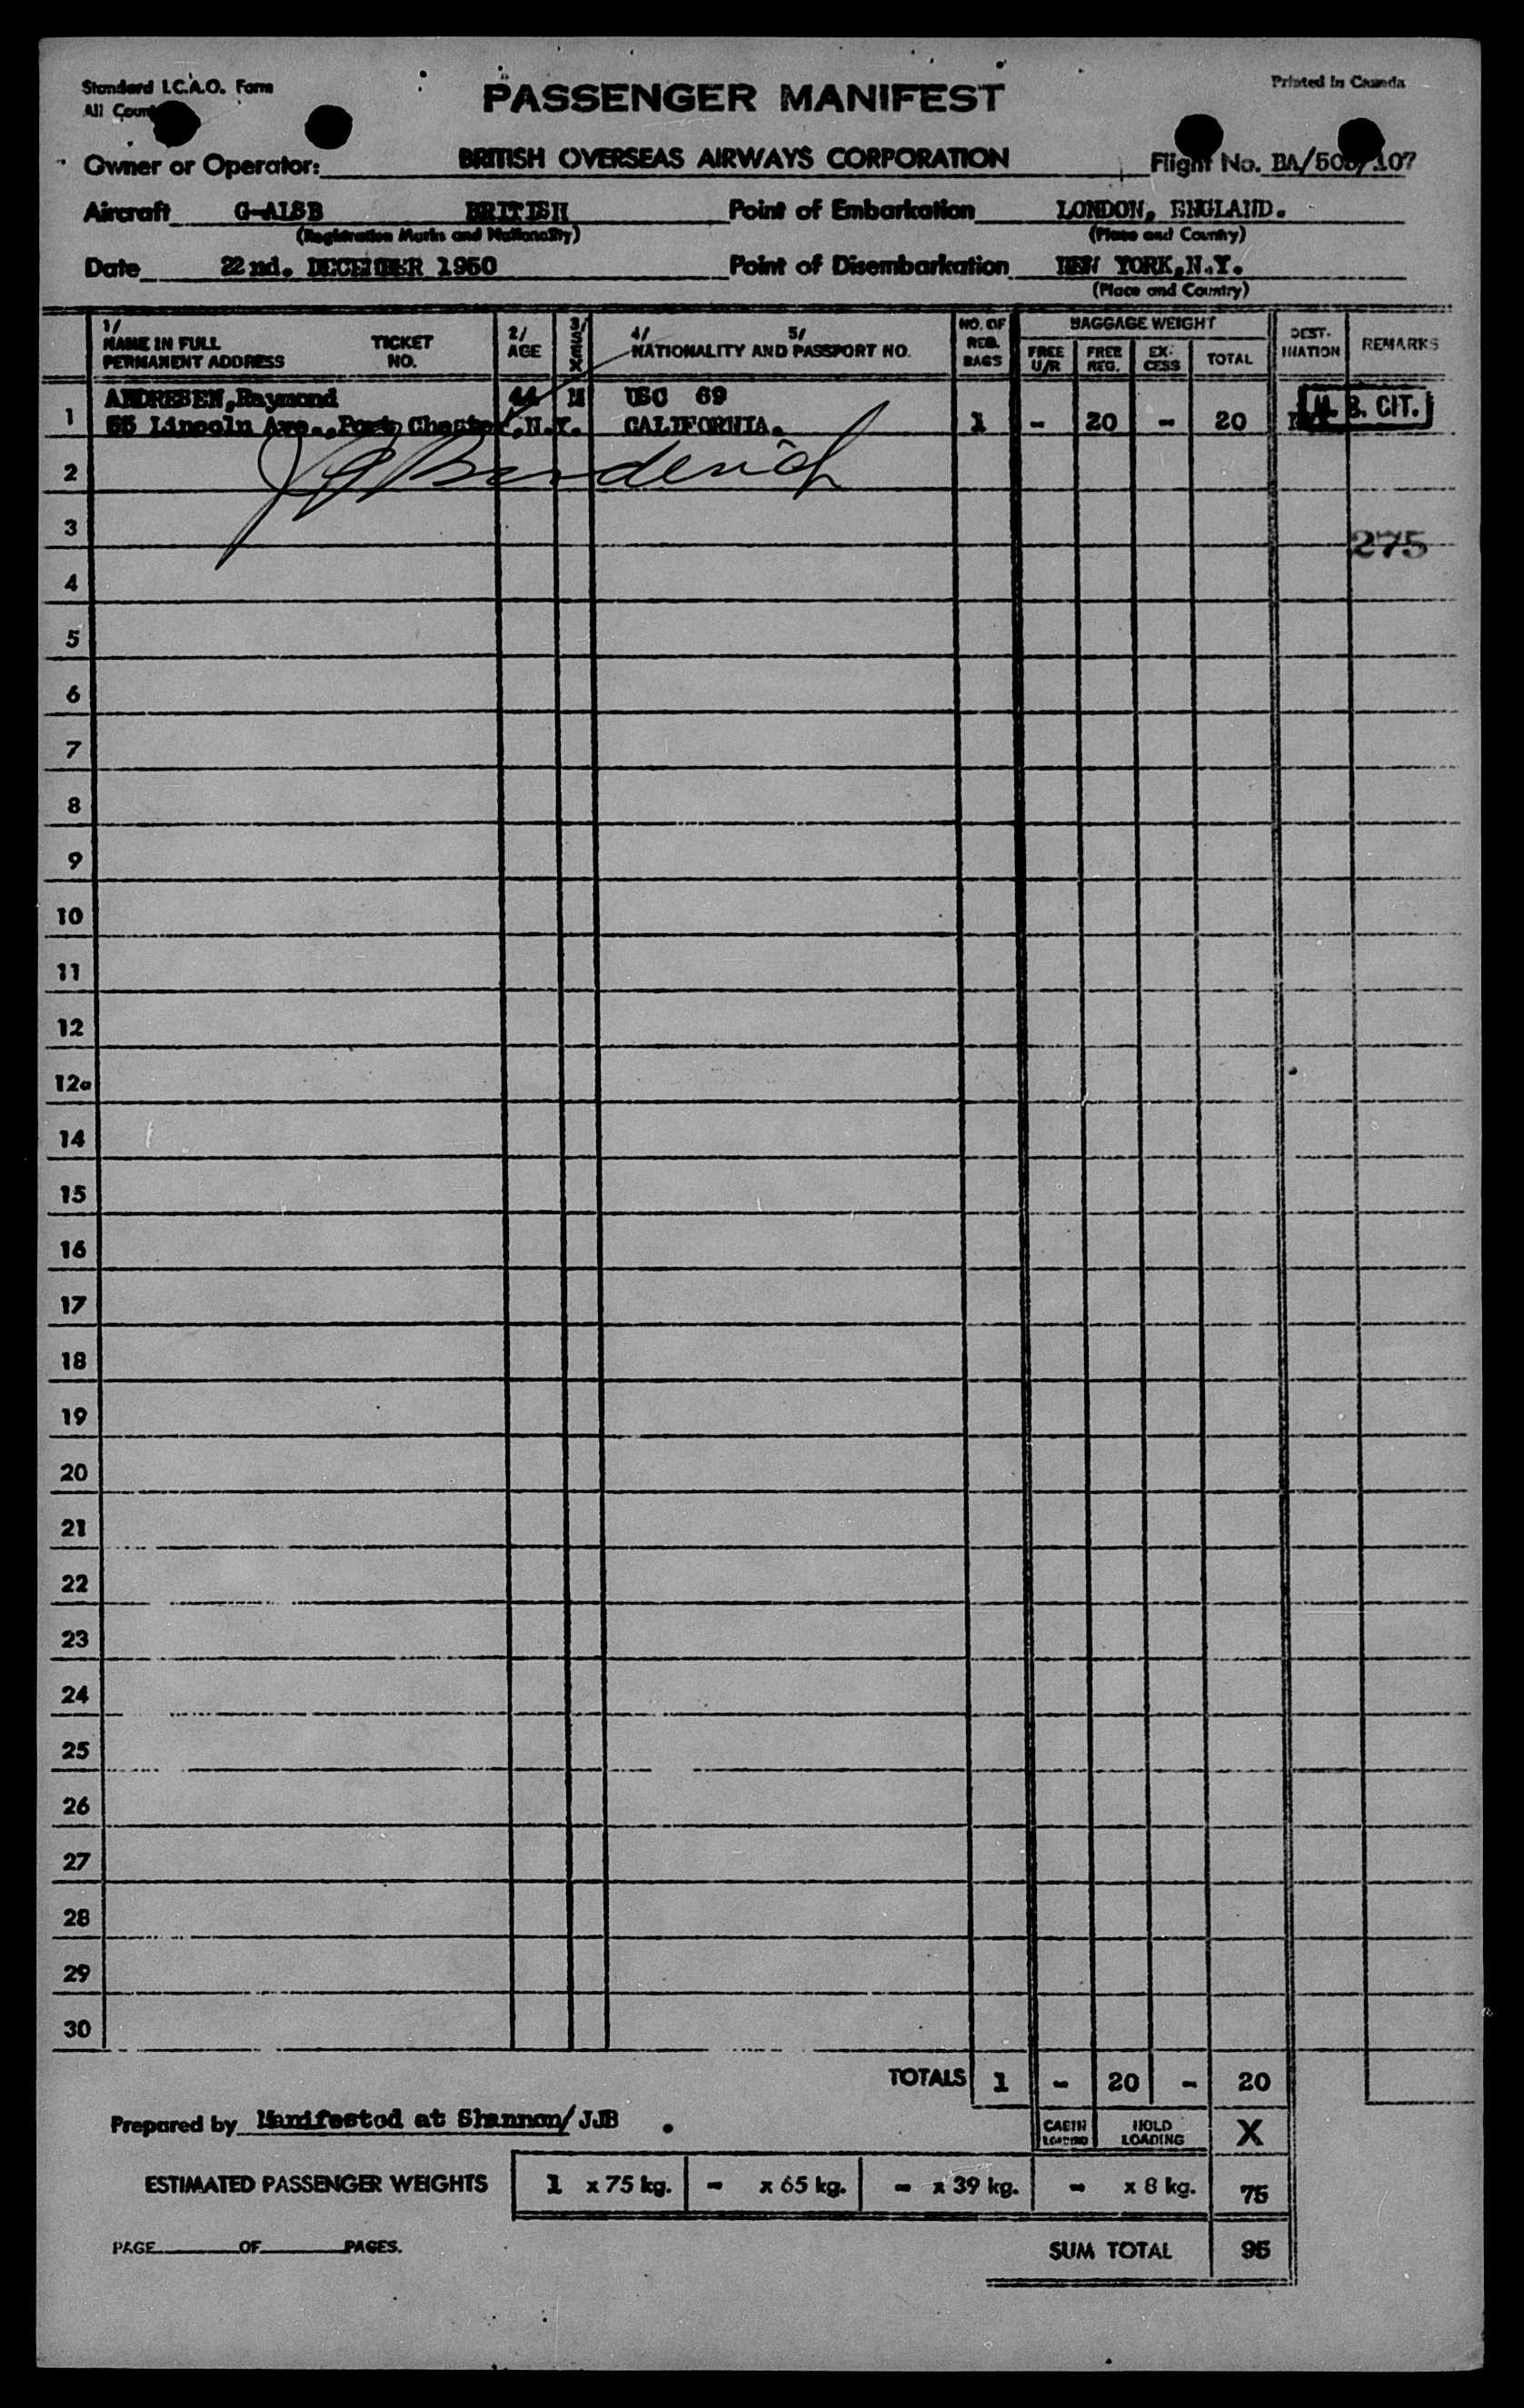 Standard I.C.A.O. Form
Printed in Canada
All
PASSENGER MANIFEST
Owner or Operator: BRITISH OVERSEAS AIRWAYS CORPORATION Flight No. BA/50 /107
Aircraft BRITISH Point of Embarkation LONDON, ENGLAND.
(Registration Marks and Nationality) (Place and Country)
Date 22nd. DECEMBER 1950 Point of Disembarkation NEW YORK,N.Y.
(Place and Country)
1/ NAME IN FULL PERMANENT ADDRESS TICKET NO. 2/ AGE 3/ SEX 4/ 5/ NATIONALITY AND PASSPORT NO. NO. OF REG. BAGS BAGGAGE WEIGHT FREE U/R FREE REG. EX-CESS TOTAL DEST-INATION REMARKS
1 ANDRESEN,Raymond 44 M USC 69
55 Lincoln Ave.,Port Chester,N.Y. CALIFORNIA. 1 - 20 - 20 CIT.
2
3 275
4
5
6
7
8
9
10
11
12
12a
14
15
16
17
18
19
20
21
22
23
24
25
26
27
28
29
30
TOTALS 1 - 20 - 20
Prepared by Manifested at Shannon/JJB . CABIN LOADING HOLD LOADING X
ESTIMATED PASSENGER WEIGHTS 1 x 75 kg. - x 65 kg. - x 39 kg. - x 8 kg. 75
PAGE OF PAGES. SUM TOTAL 95